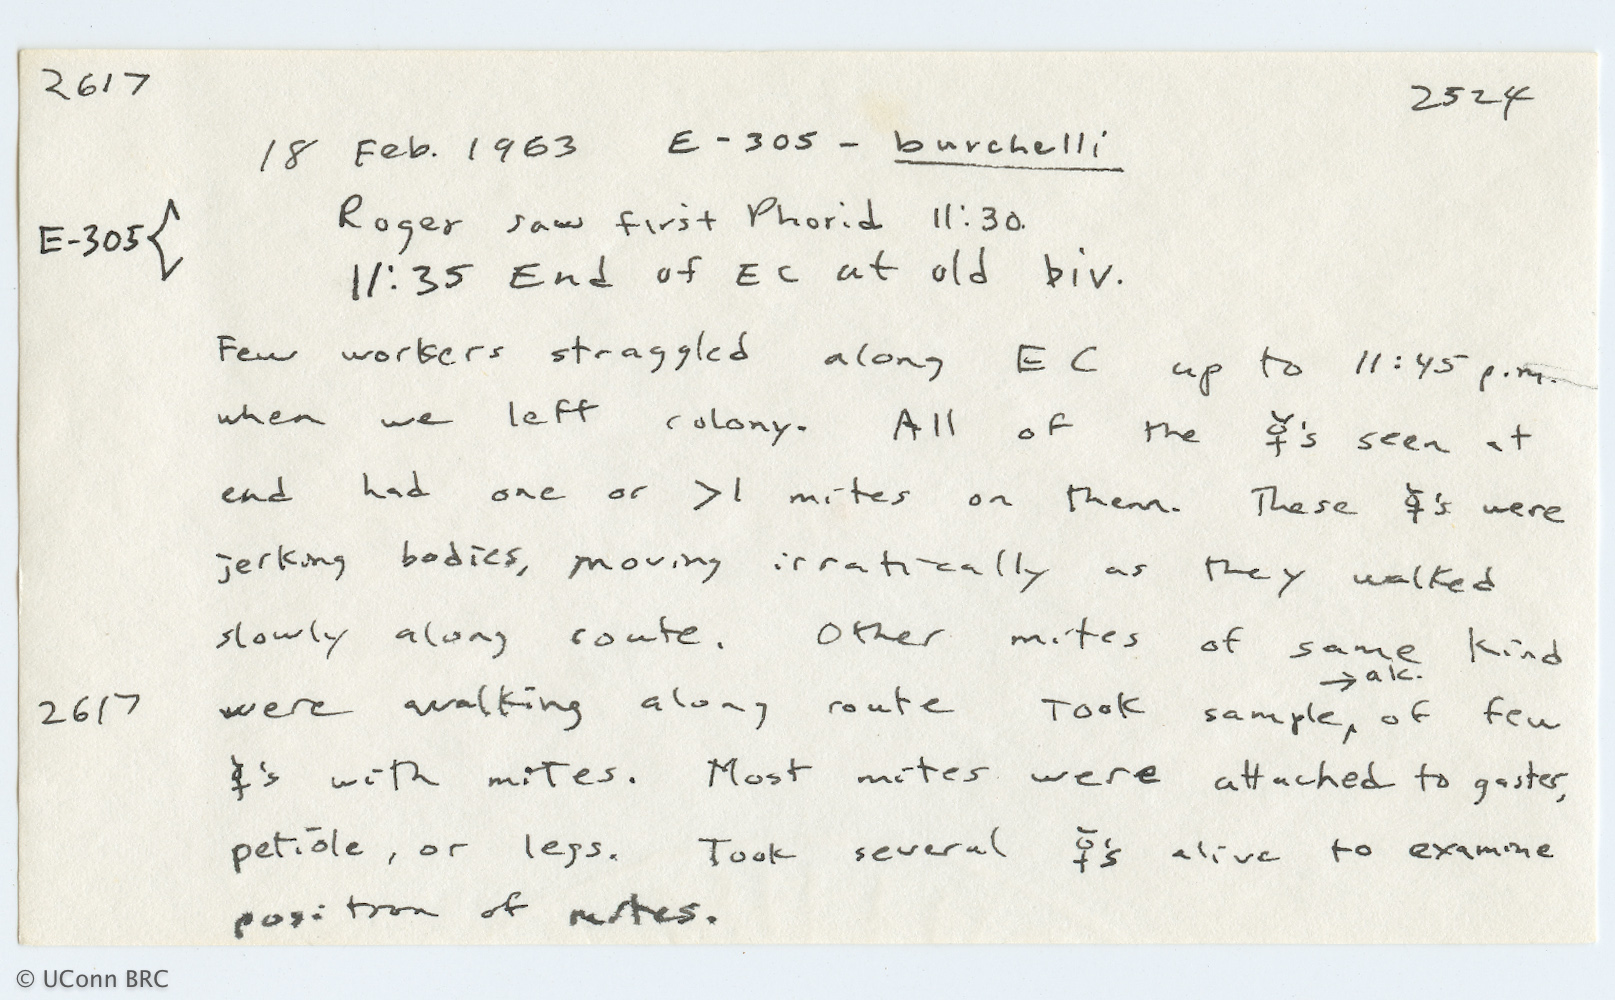 2617
2524
18 Feb. 1963 E-305 - burchelli
E-305{ Roger saw first Phorid 11:30.
11:35 End of EC at old biv.
Few workers straggled along EC up to 11:45 p.m.
when we left colony. All of the ☿'s seen at
end had one or >1 mites on them. These ☿'s were
jerking bodies, moving irratically as they walked
slowly along route. Other mites of same kind
→ alc.
2617 were walking along route Took sample, of few
☿'s with mites. Most mites were attached to gaster,
petiole, or legs. Took several ☿'s alive to examine
position of mites.
© UConn BRC